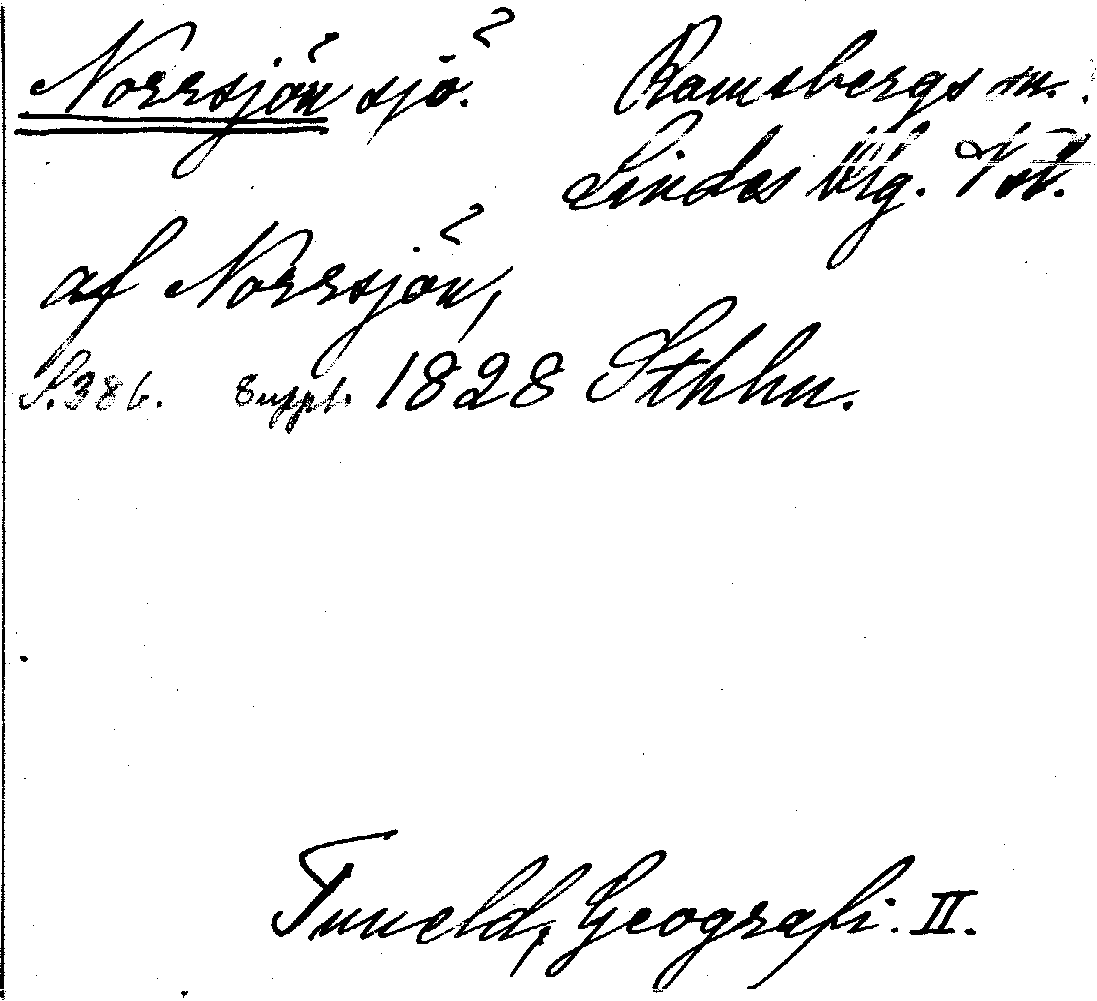 Norrsjön sjö. Ramsbergs sn.
Lindes Brg. Vstl.
af Norrsjön,
S. 386. Suppl. 1828 Sthlm.
Tuneld, Geografi. II.